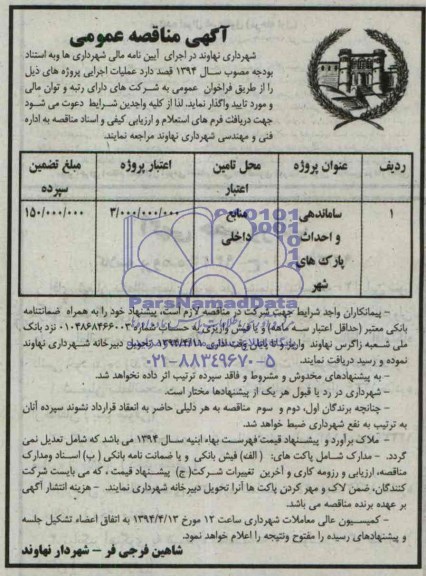 آگهی مناقصه عمومی
شهرداری نهاوند در اجرای آیین نامه مالی شهرداری ها وبه استناد
بودجه مصوب سال ۱۳۹۴ قصد دارد عملیات اجرایی پروژه های ذیل
را از طریق فراخوان عمومی به شرکت های دارای رتبه و توان مالی
و مورد تایید واگذار نماید. لذا از کلیه واجدین شرایط دعوت می شود
جهت دریافت فرم های استعلام و ارزیابی کیفی و اسناد مناقصه به اداره
فنی و مهندسی شهرداری نهاوند مراجعه نمایند.
ردیف عنوان پروژه محل تامین اعتبار اعتبار پروژه مبلغ تضمین سپرده
۱ ساماندهی و احداث پارک های شهر منابع داخلی ۳/۰۰۰/۰۰۰/۰۰۰ ۱۵۰/۰۰۰/۰۰۰
ParsNamadData
۰۲۱-۸۸۳۴۹۶۷۰-۵
- پیمانکاران واجد شرایط جهت شرکت در مناقصه لازم است، پیشنهاد خود را به همراه ضمانتنامه
بانکی معتبر (حداقل اعتبار سه ماهه) و یا فیش واریزی به حساب شماره ۰۱۰۴۸۶۸۴۶۶۰۰۳ نزد بانک
ملی شعبه زاگرس نهاوند واریز و تا پایان وقت اداری ۱۳۹۴/۴/۱۱ تحویل دبیرخانه شهرداری نهاوند
نموده و رسید دریافت نمایند.
- به پیشنهادهای مخدوش و مشروط و فاقد سپرده ترتیب اثر داده نخواهد شد.
- شهرداری در رد یا قبول هر یک از پیشنهادها مختار است.
- چنانچه برندگان اول، دوم و سوم مناقصه به هر دلیلی حاضر به انعقاد قرارداد نشوند سپرده آنان
به ترتیب به نفع شهرداری ضبط خواهد شد.
- ملاک برآورد و پیشنهاد قیمت فهرست بهاء ابنیه سال ۱۳۹۴ می باشد که شامل تعدیل نمی
گردد. - مدارک شامل پاکت های: (الف) فیش بانکی و یا ضمانت نامه بانکی (ب) اسناد ومدارک
مناقصه، ارزیابی و رزومه کاری و آخرین تغییرات شرکت (ج) پیشنهاد قیمت، که می بایست شرکت
کنندگان، ضمن لاک و مهر کردن پاکت ها آنرا تحویل دبیرخانه شهرداری نمایند. - هزینه انتشار آگهی
بر عهده برنده مناقصه می باشد.
- کمیسیون عالی معاملات شهرداری ساعت ۱۲ مورخ ۱۳۹۴/۴/۱۳ به اتفاق اعضاء تشکیل جلسه
و پیشنهادهای رسیده را مفتوح ونتیجه را اعلام خواهد نمود.
شاهین فرجی فر - شهردار نهاوند